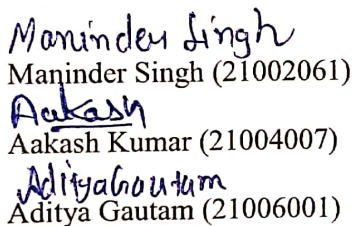 Maninder Singh
Maninder Singh (21002061)
Aakash
Aakash Kumar (21004007)
Aditya Gautam
Aditya Gautam (21006001)